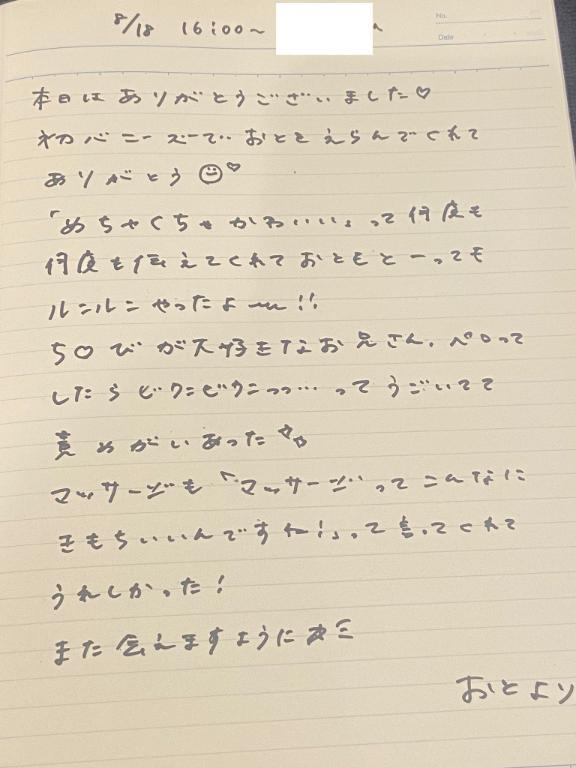 8/18 16:00〜
No.
Date
本日はありがとうございました♡
初バニーズで‥おとをえらんでくれて
ありがとう☺♡
「めちゃくちゃかわいい」って何度も
何度も伝えてくれておともと〜っても
ルンルンやったよ〜!!
ち○びが大好きなお兄さん。ペロって
したらビクンビクンっっ…ってうごいてて
責めがいあった
マッサージも「マッサージってこんなに
きもちいいんですね!」って言ってくれて
うれしかった!
また会えますように☆ミ
おとより